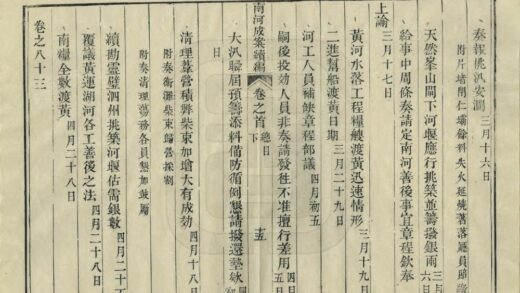 奏報桃汛安瀾 三月十六日
附片培閘仁壩餘料失火延燒著落廳員賠
天然峯山閘下河堰應行挑築並籌撥銀兩 三月
六日
給事中周條奏請定南河善後事宜章程欽奉
上諭 三月十七日
黃河水落工程糧艘渡黃迅速情形 三月十九日
二進幫船渡黃日期 三月二十九日
河工人員補缺章程部議 四月初五
嗣後投効人員非奏請發往不准擅行差用 四月
五日
南河成案續編 卷之首 總目 下 十五
大汛屆預籌添料備防循例懇請撥還墊款
日
清理葦營積弊柴束加增大有成効 四月十八日
附奏海灘柴束歸營採割
附奏清理蕩務各員懇加鼓勵
續勘靈璧泗州挑築河堰估需銀數 四月二十
覆議黃運湖河各工善後之法 四月二十八日
南糧全數渡黃 四月二十八日
卷之八十三